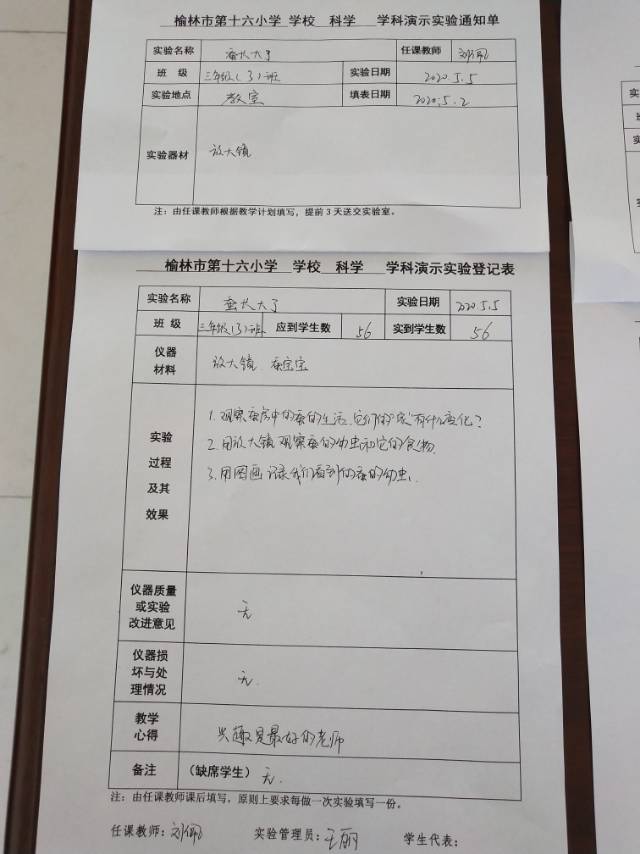 榆林市第十六小学 学校 科学 学科演示实验通知单
实验名称 蚕长大了 任课教师 刘佩
班 级 三年级(3)班 实验日期 2020.5.5
实验地点 教室 填表日期 2020.5.2
实验器材 放大镜
注：由任课教师根据教学计划填写，提前3天送交实验室。
榆林市第十六小学 学校 科学 学科演示实验登记表
实验名称 蚕长大了 实验日期 2020.5.5
班 级 三年级(3)班 应到学生数 56 实到学生数 56
仪器
材料
放大镜 蚕宝宝
实验
过程
及其
效果
1.观察蚕房中的蚕的生活,它们的 有什么变化?
2.用放大镜观察蚕的幼虫和它的食物.
3.用图画记录我们看到的蚕的幼虫.
仪器质量
或实验
改进意见
无
仪器损
坏与处
理情况
无.
教学
心得
兴趣是最好的老师
备注 (缺席学生) 无.
注：由任课教师课后填写，原则上要求每做一次实验填写一份。
任课教师：刘佩 实验管理员：王丽 学生代表：